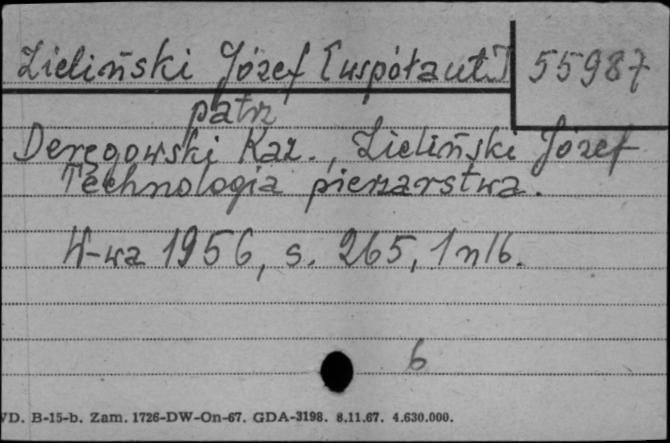 Zieliński Józef [współaut.] 55987
patrz
Deręgowski Kaz., Zieliński Józef
Technologia pierzarstwa.
W-wa 1956, s. 265, 1 nlb.
6
VD. B-15-b. Zam. 1726-DW-On-67. GDA-3198. 8.11.67. 4.630.000.